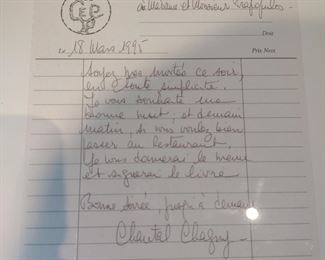 CEP
de Madame et Monsieur
Doit
Le 18 Mars 1995
Prix Net
Soyez nos invités ce soir,
en toute simplicité.
Je vous souhaite une
bonne nuit, et demain
matin, si vous voulez bien
passer au restaurant,
Je vous donnerai le menu
et signerai le livre
Bonne soirée, jusqu'à demain
Chantal Chagny